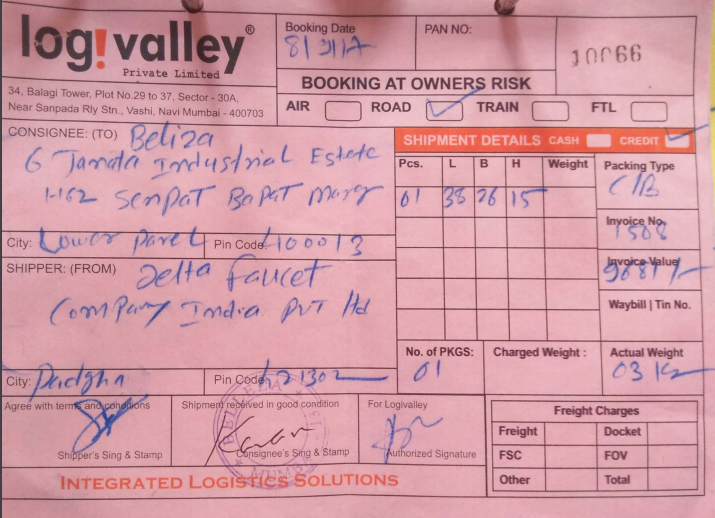 log!valley®
Private Limited
34, Balagi Tower, Plot No.29 to 37, Sector - 30A,
Near Sanpada Rly Stn., Vashi, Navi Mumbai - 400703
Booking Date
PAN NO:
10066
BOOKING AT OWNERS RISK
AIR ROAD TRAIN FTL
CONSIGNEE: (TO) Beliza
6 Janata Industrial Estate
Senpat Bapat Marg
City: Lower Parel Pin Code 400013
SHIPPER: (FROM) Delta Faucet
Company India Pvt ltd
City: Padgha Pin Code 421302
SHIPMENT DETAILS CASH CREDIT
Pcs. L B H Weight Packing Type
01 38 26 15 C/B
Invoice No.
1508
Invoice Value
Waybill | Tin No.
No. of PKGS: Charged Weight : Actual Weight
01 03 Kg
Agree with terms and conditions
Shipper's Sing & Stamp
Shipment received in good condition
Consignee's Sing & Stamp
For Logivalley
Authorized Signature
Freight Charges
Freight Docket
FSC FOV
Other Total
INTEGRATED LOGISTICS SOLUTIONS